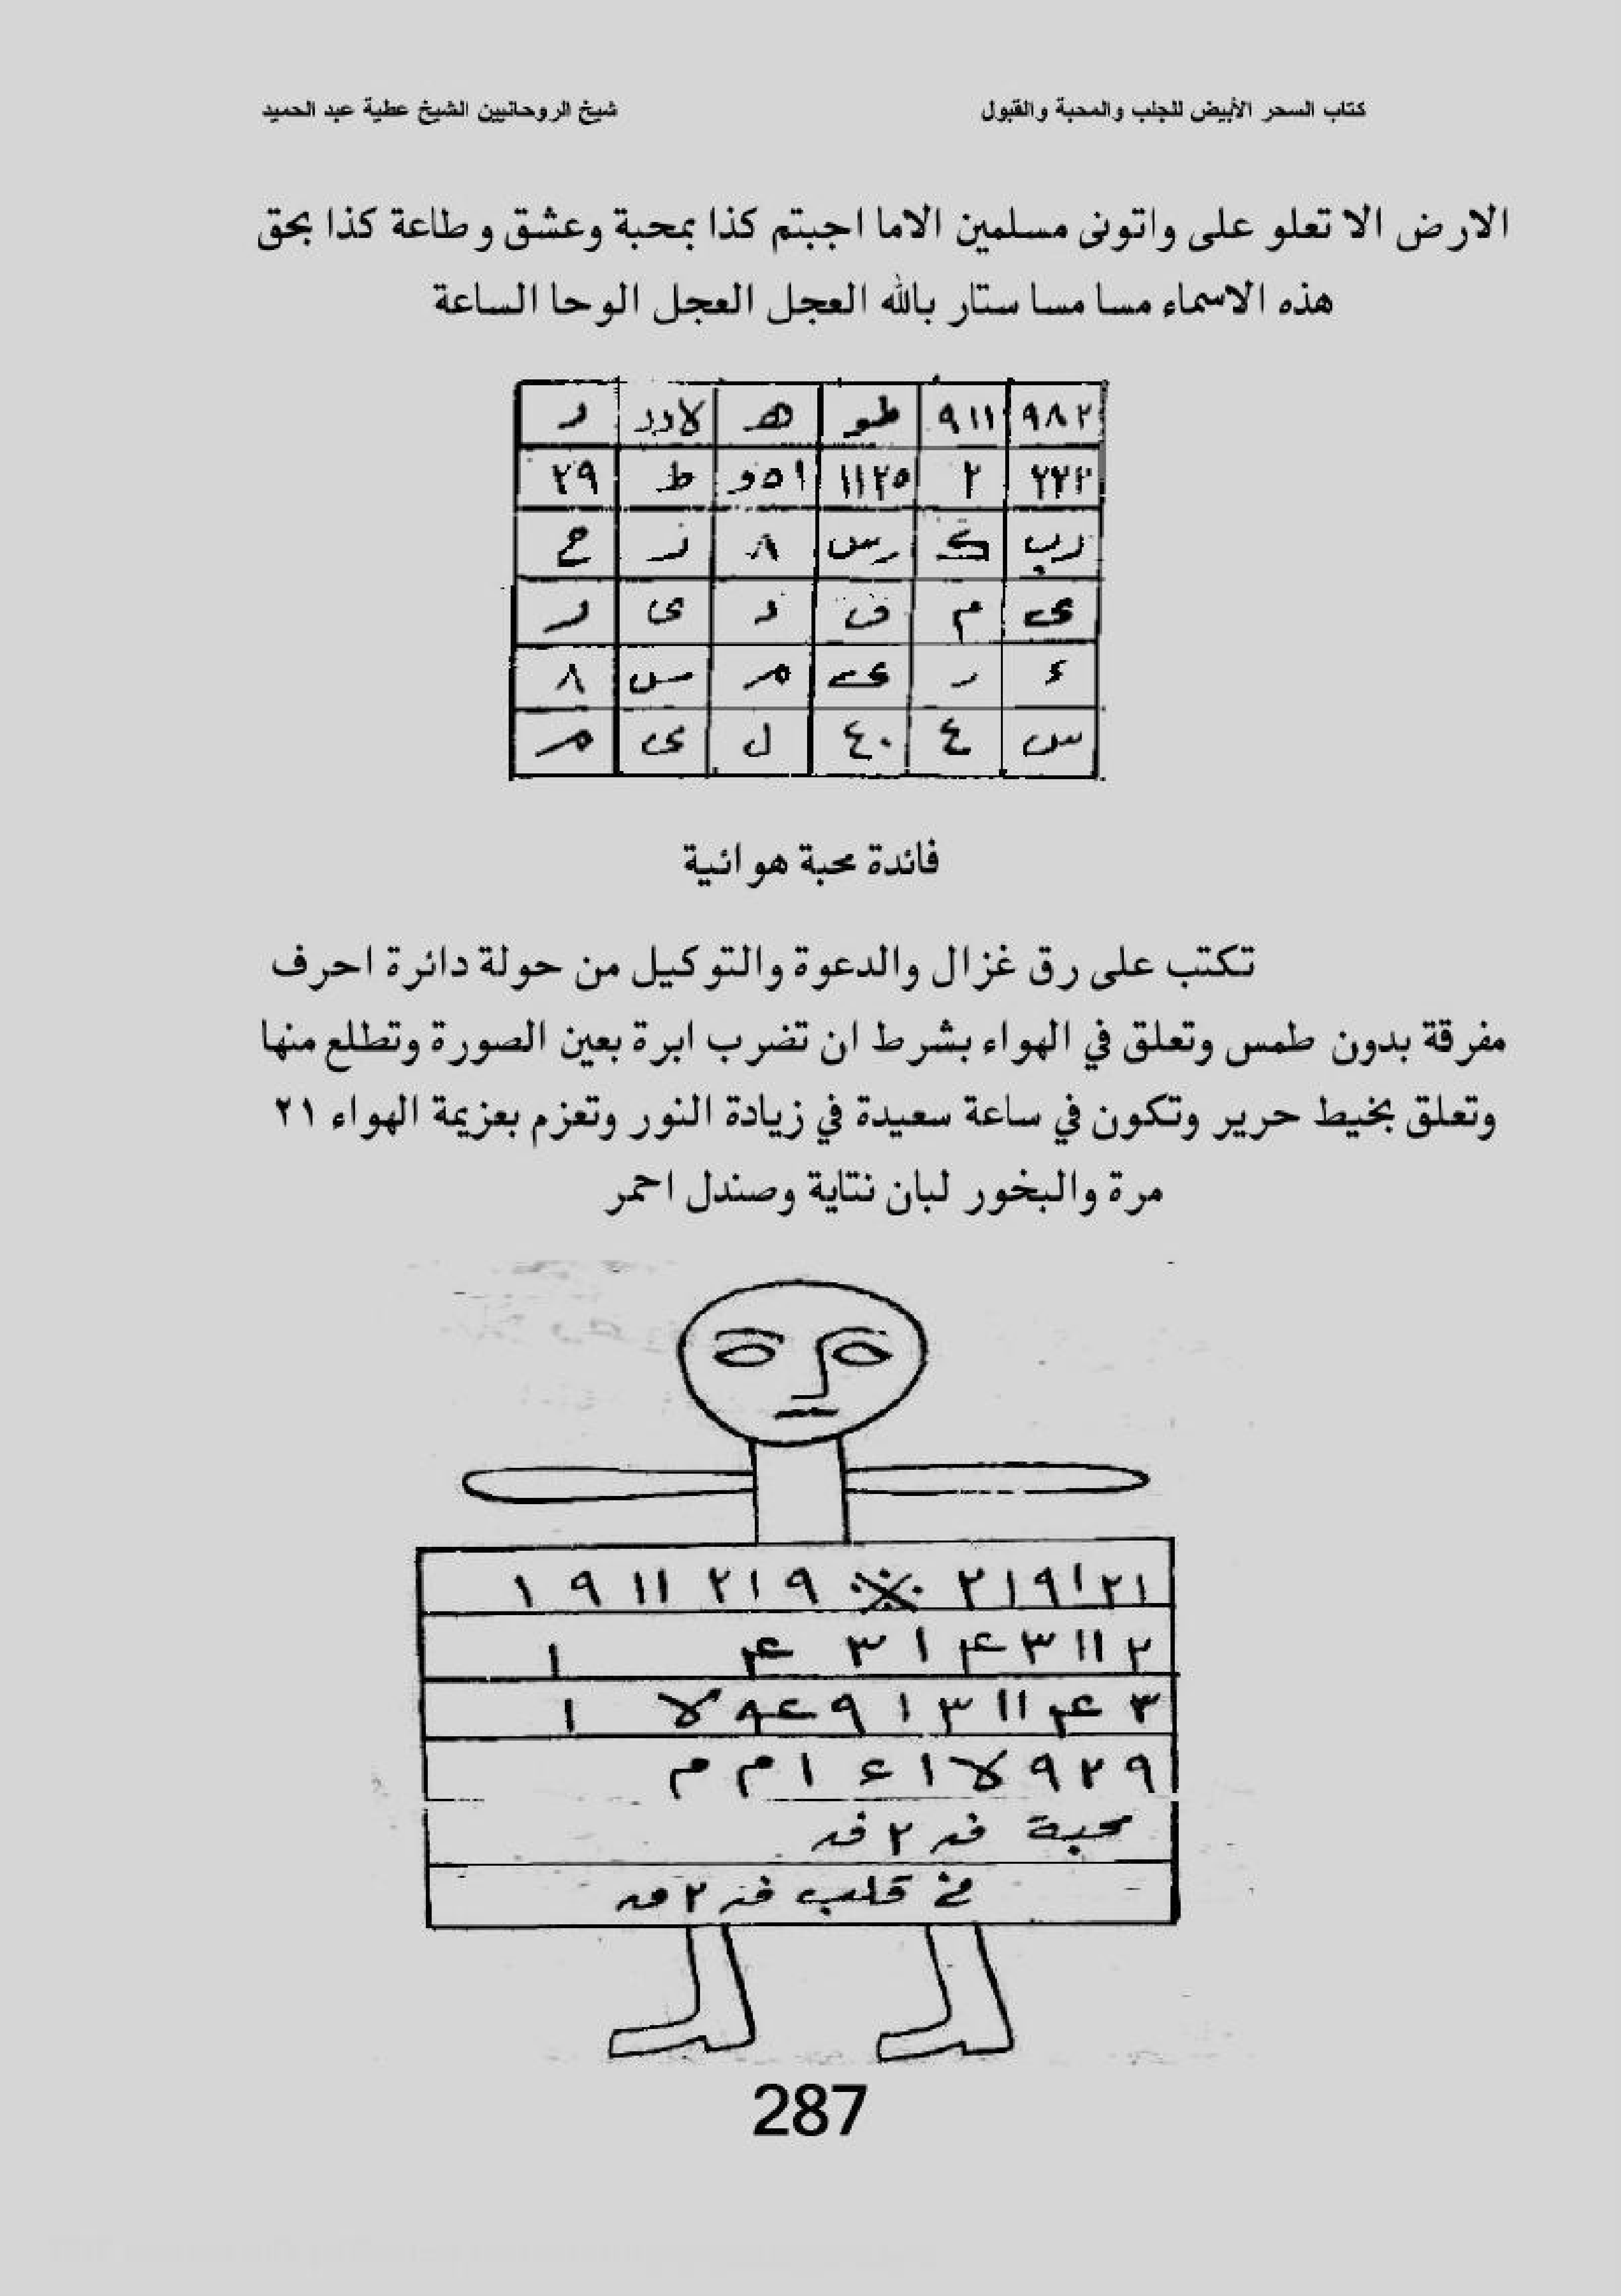 كتاب السحر الأبيض للجلب والمحبة والقبول
شيخ الروحانيين الشيخ عطية عبد الحميد
الارض الا تعلو على واتونى مسلمين الاما اجبتم كذا بمحبة وعشق وطاعة كذا بحق
هذه الاسماء مسا مسا ستار بالله العجل العجل الوحا الساعة
٩٨٢ ٩١١ طو ه لادد د
٢٢٢ ٢ ١١٢٥ ١٥و ط ٢٩
رب ك رس ٨ ر ح
ى م ق د ى ر
ء ر ى م س ٨
س ع ٤٠ ل ى م
فائدة محبة هوائية
تكتب على رق غزال والدعوة والتوكيل من حولة دائرة احرف
مفرقة بدون طمس وتعلق في الهواء بشرط ان تضرب ابرة بعين الصورة وتطلع منها
وتعلق بخيط حرير وتكون في ساعة سعيدة في زيادة النور وتعزم بعزيمة الهواء ٢١
مرة والبخور لبان نتاية وصندل احمر
١ ٩ ١١ ٢ ١ ٩ ※ ٢ ١ ٩ ١ ٢ ١
٢ ١١ ٣ ۴ ١ ٣ ۴ ١
٣ ۴ ١١ ٣ ١ ٩ ع ٩ لا ١
٩ ٢ ٩ لا ١ ء ١ م م
محبة ف ٢ ف
في قلب ف ٢ ف
287